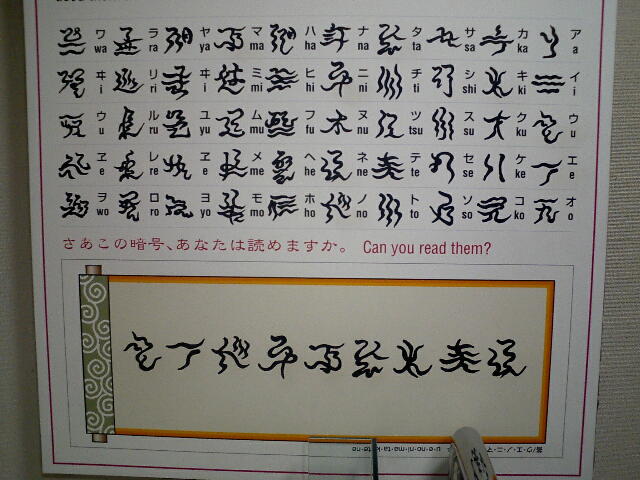 ワ ラ ヤ マ ハ ナ タ サ カ ア
wa ra ya ma ha na ta sa ka a
ヰ リ ヰ ミ ヒ ニ チ シ キ イ
i ri i mi hi ni ti shi ki i
ウ ル ユ ム フ ヌ ツ ス ク ウ
u ru yu mu fu nu tsu su ku u
ヱ レ ヱ メ ヘ ネ テ セ ケ エ
e re e me he ne te se ke e
ヲ ロ ヨ モ ホ ノ ト ソ コ オ
wo ro yo mo ho no to so ko o
さあこの暗号、あなたは読めますか。 Can you read them?
答/ウ・エ・ノ・ニ・マ
u・e・no・ni・ma・ta・ki・te・ne